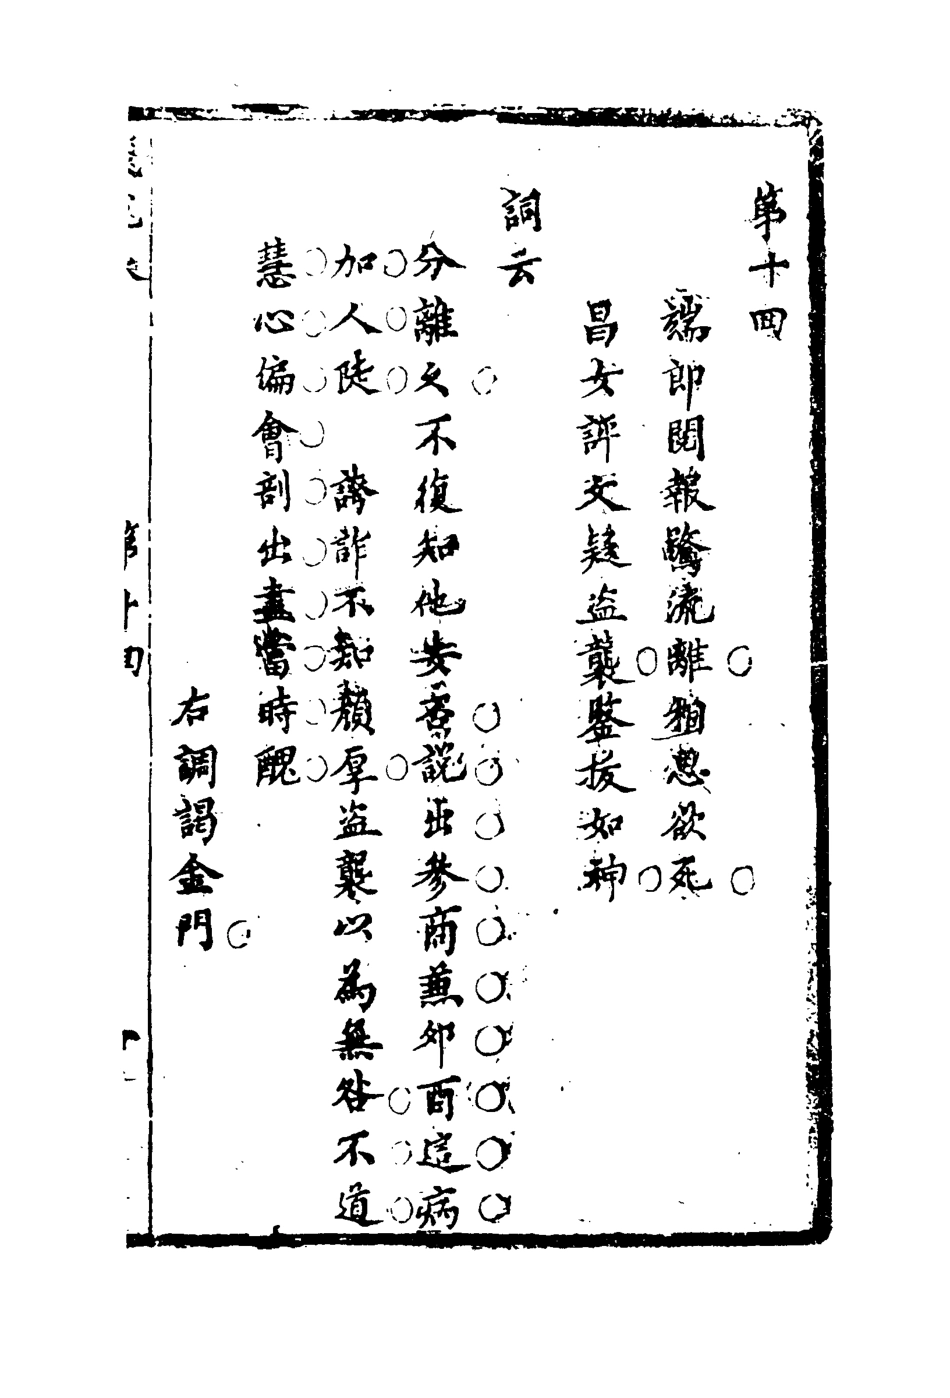 第十四
孺郎閱報驚流離雅思欲死
昌女評文疑盜襲鑒拔如神
詞云
分離久不復知他安否說出參商兼卯酉這病
加人陡　譸詐不知顏厚盜襲以為無咎不道
慧心偏會剖出盡當時醜
右調謁金門
第十四